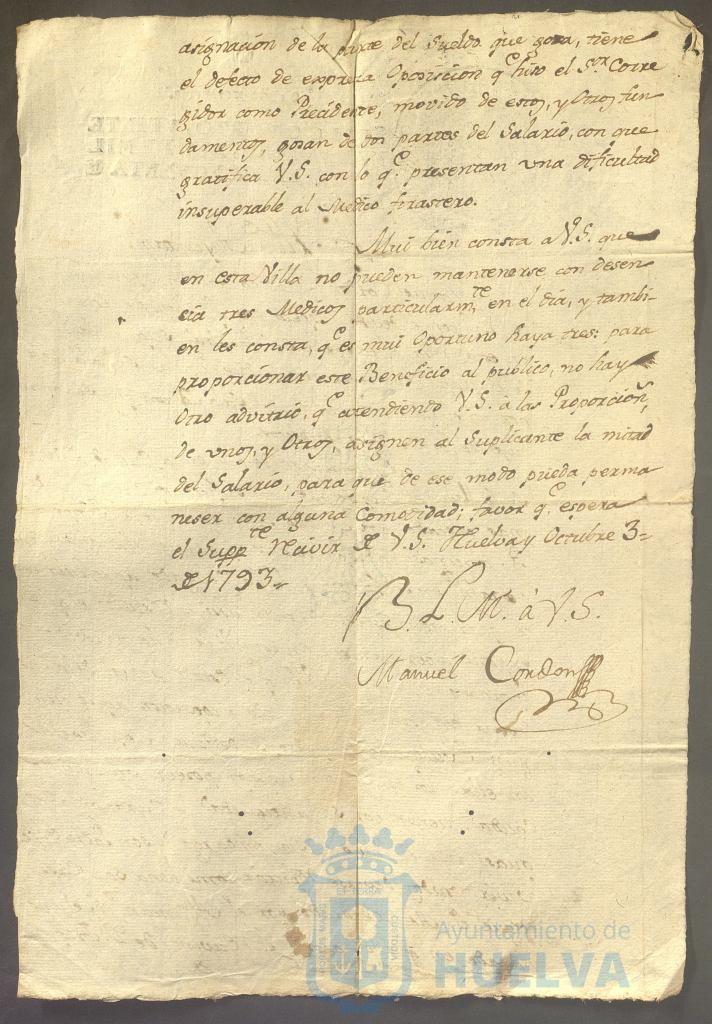 asignacion de la parte del Sueldo que goza, tiene
el defecto de expresa Oposision q.e hiso el S.or Corre
gidor como Precidente, movido de estos, y Otros fun
damentos, gosan de dos partes del Salario, con que
gratifica V.S. con lo q.e presentan una dificultad
insuperable al Medico forastero.
Mui bien consta a V.S. que
en esta Villa no pueden mantenerse con desen
cia tres Medicos particularm.te en el dia, y tambi-
en les consta, q.e es mui Oportuno haya tres: para
proporcionar este Beneficio al publico, no hay
Otro advitrio, q.e atendiendo V.S. a las Proporcion.s
de unos, y Otros, asignen al Suplicante la mitad
del Salario, para que de ese modo pueda perma
neser con alguna Comodidad; favor q.e espera
el Supp.te de V.S. Huelva y Octubre 3=
de 1793=
B. L. M. à V.S.
Manuel Cordon
ET TERRA
Ayuntamiento de
HUELVA